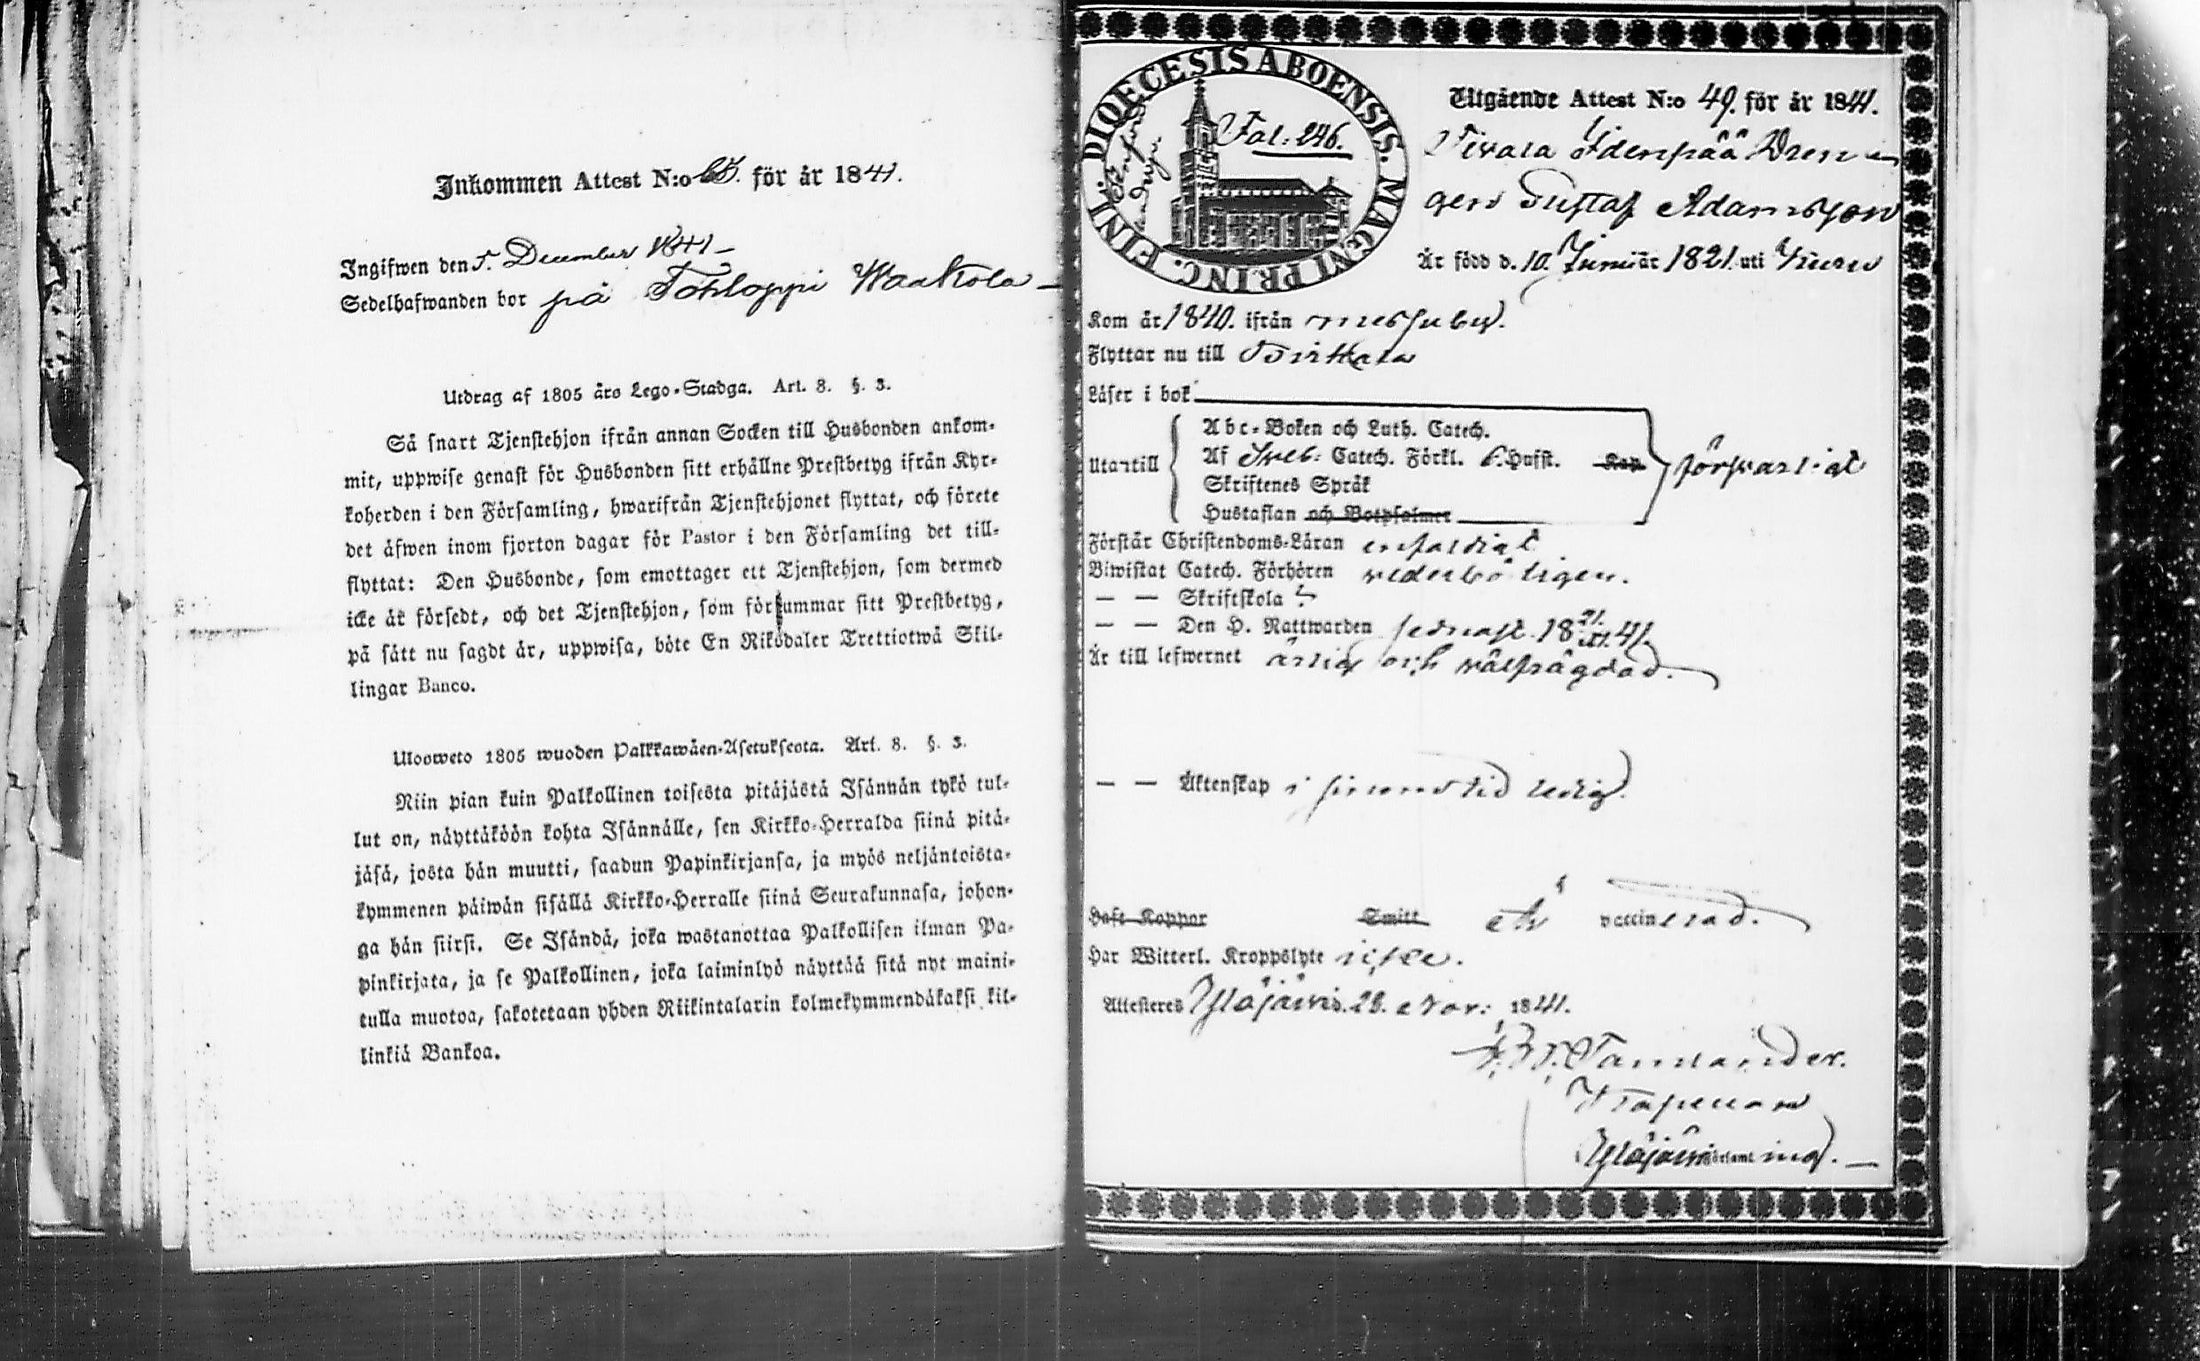 Inkommen Attest N:o för år 1841.
Ingifwen den 5. December 1841 –
Sedelhafwanden bor på Tohloppi Waakola –
Utdrag af 1805 års Lego-Stadga. Art. 8. §. 3.
Så snart Tjenstehjon ifrån annan Socken till Husbonden ankom-
mit, uppwise genast för Husbonden sitt erhållne Prestbetyg ifrån Kyr-
koherden i den Församling, hwarifrån Tjenstehjonet flyttat, och förete
det äfwen inom fjorton dagar för Pastor i den Församling det till-
flyttat: Den Husbonde, som emottager ett Tjenstehjon, som dermed
icke är försedt, och det Tjenstehjon, som försummar sitt Prestbetyg,
på sätt nu sagdt är, uppwisa, böte En Riksdaler Trettiotwå Skil-
lingar Banco.
Ulosweto 1805 wuoden Palkkawäen-Asetuksesta. Art. 8. §. 3.
Niin pian kuin Palkollinen toisesta pitäjästä Isännän tykö tul-
lut on, näyttäköön kohta Isännälle, sen Kirkko-Herralda siinä pitä-
jäsä, josta hän muutti, saadun Papinkirjansa, ja myös neljäntoista-
kymmenen päiwän sisällä Kirkko-Herralle siinä Seurakunnasa, johon-
ga hän siirsi. Se Isändä, joka wastanottaa Palkollisen ilman Pa-
pinkirjata, ja se Palkollinen, joka laiminlyö näyttää sitä nyt maini-
tulla muotoa, sakotetaan yhden Riikintalarin kolmekymmendäkaksi kil-
linkiä Bankoa.
DIOECESIS ABOENSIS. MAGNI PRINC. FINL.
Fol: 246.
Utgående Attest N:o 49. för år 1841.
Idenpää Dren
gen Gustaf Adamsson
Är född d. 10. Junii år 1821. uti Kuru
Kom år 1840. ifrån Messuby.
Flyttar nu till Birkkala
Läser i bok
Utantill
Abc-Boken och Luth. Catech.
Af Sveb: Catech. Förkl. 6. Hufst. Kap
Skriftenes Språk
Hustaflan och Botpsalmer
försvarligt
Förstår Christendoms-Läran enfaldigt
Biwistat Catech. Förhören vederbörligen.
— — Skriftskola
— — Den H. Nattwarden sednast 18 21/11 41.
Är till lefwernet ärlig och välfrägdad.
— — Äktenskap i sinom tid ledig.
Haft Koppor Smitt är vaccinerad.
Har Witterl. Kroppslyte icke.
Attesteres Ylöjärvi. 28. Nov: 1841.
Tamlander.
Kapellan
Ylöjärvi församling. —